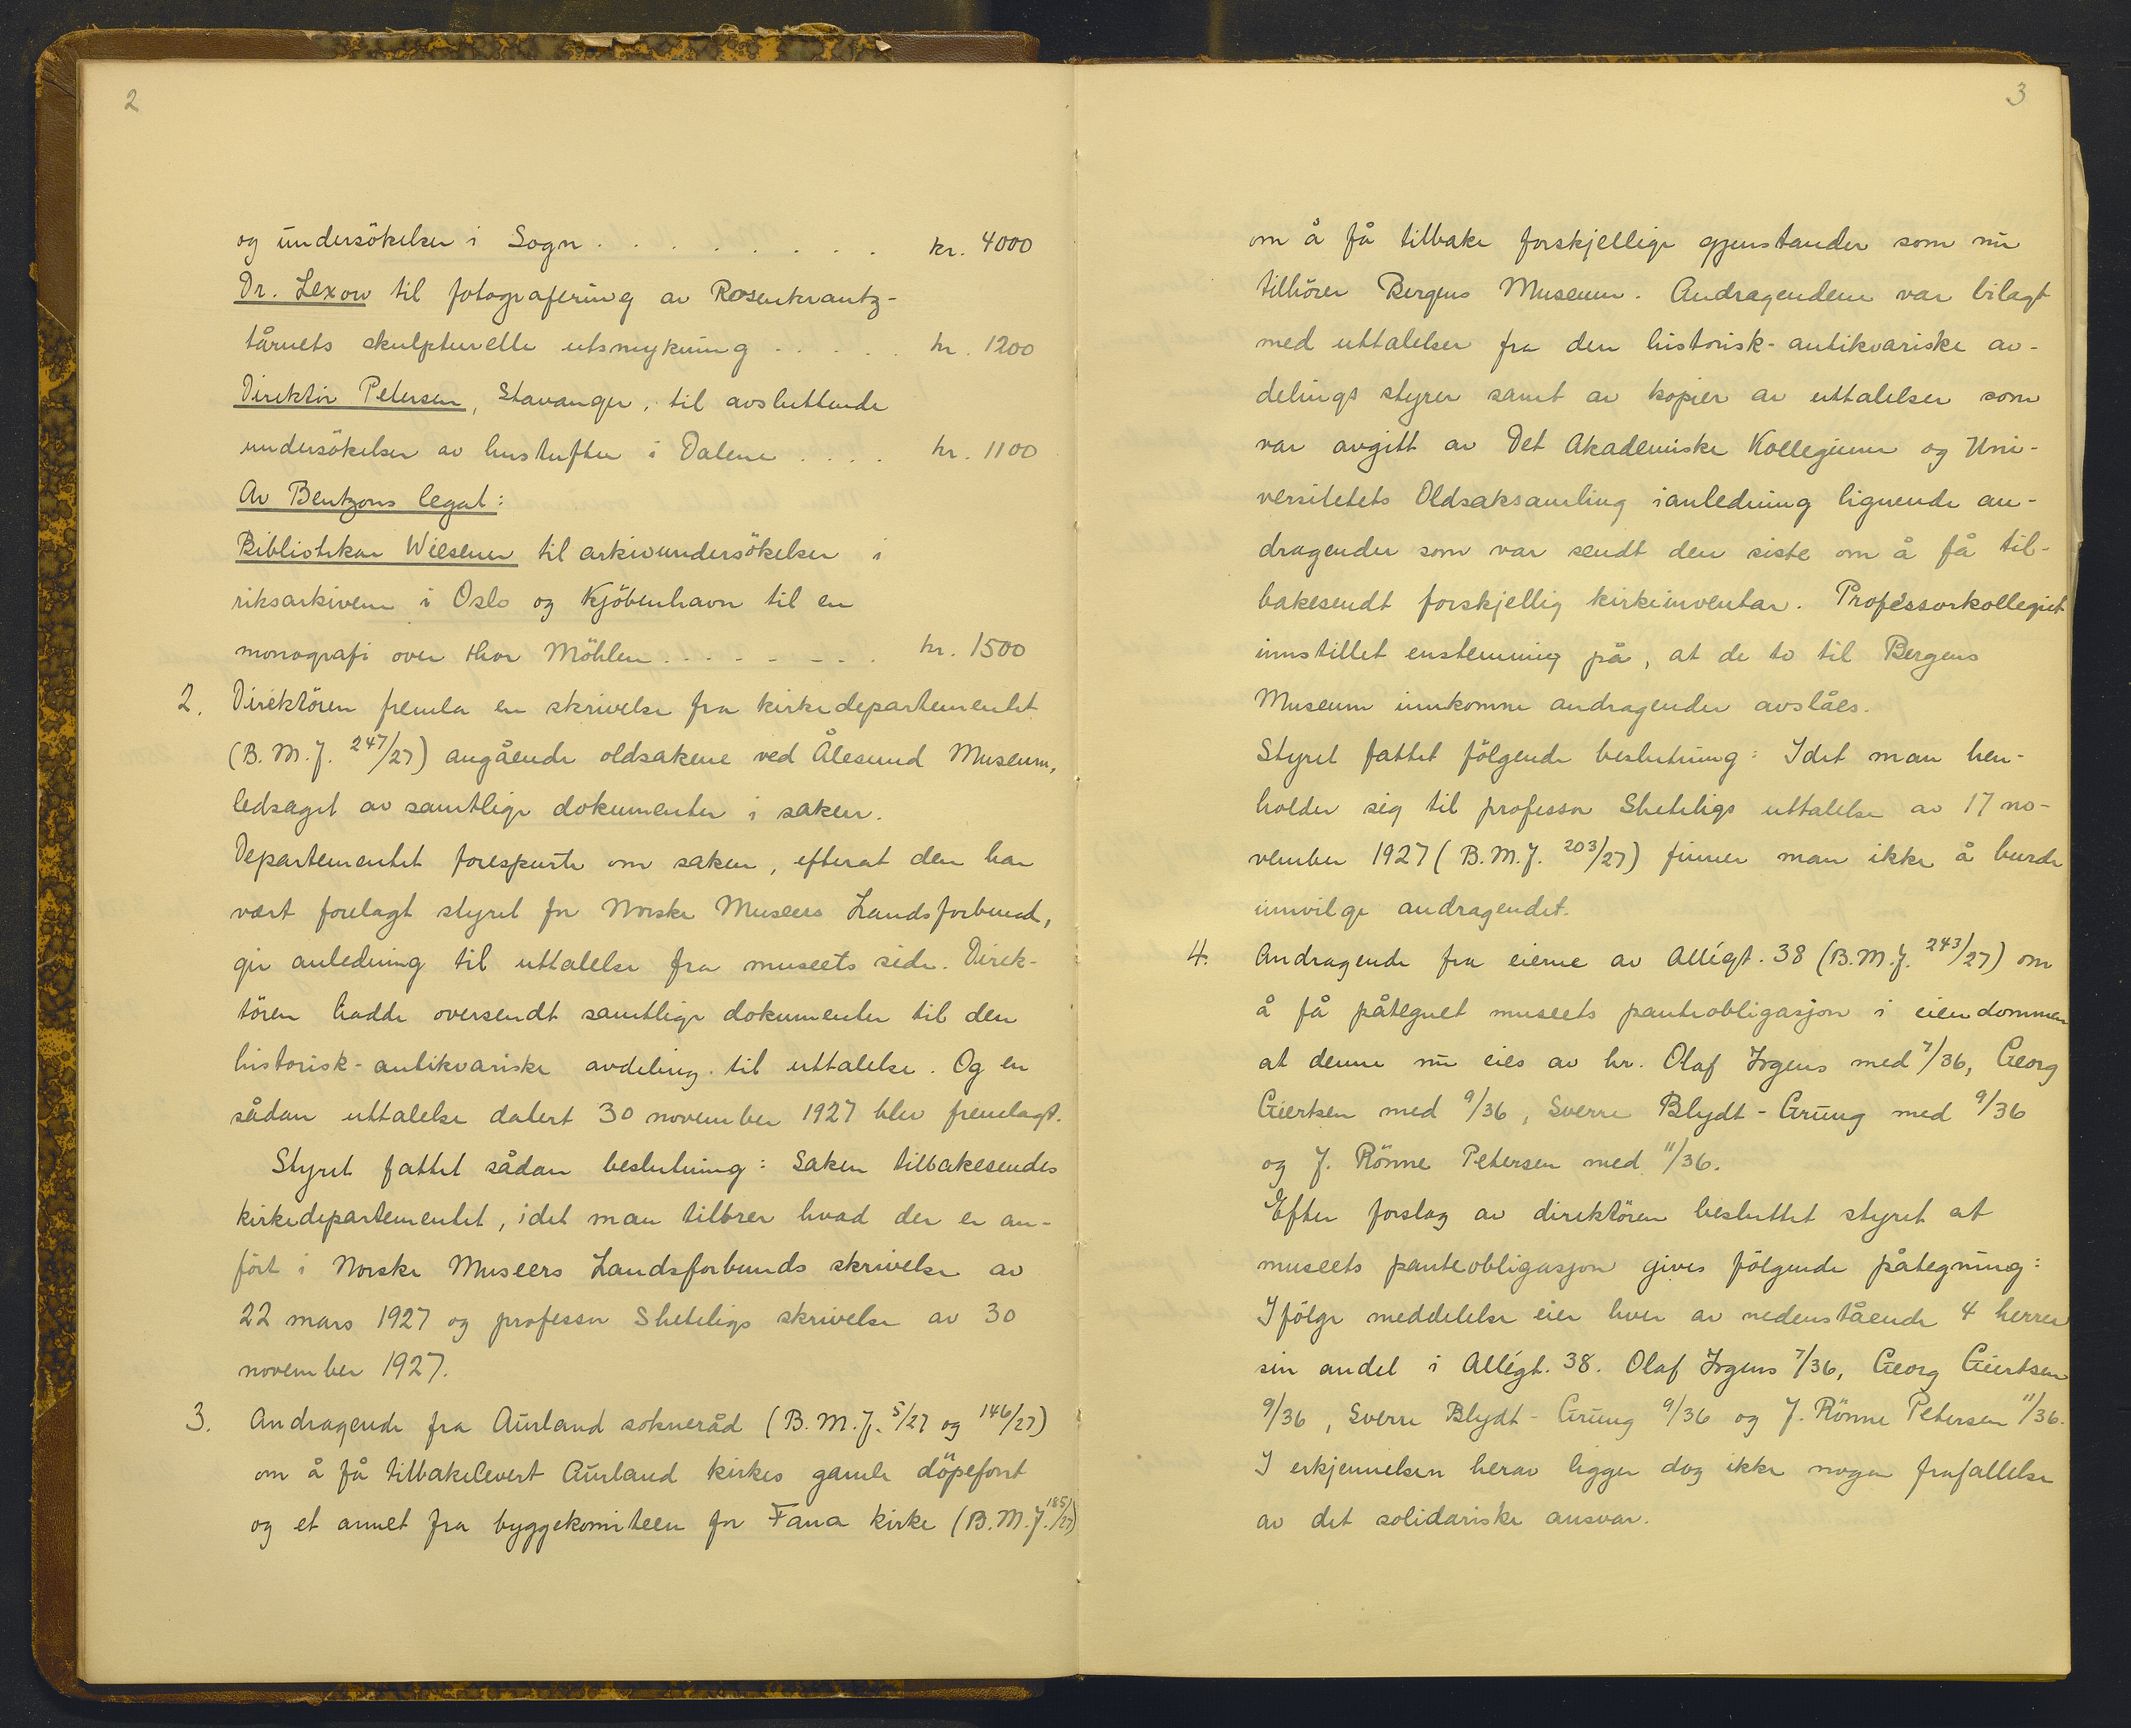 2
og undersökelser i Sogn . . . . . . . . kr. 4000
Dr. Lexow til fotografering av Rosenkrantz-
tårnets skulpturelle utsmykning . . . . . kr. 1200
Direktör Petersen, Stavanger, til avsluttende
undersökelser av hustufter i Dalene . . . . kr. 1100
Av Bentzons legat:
Bibliotekar Wiesener til arkivundersökelser i
riksarkivene i Oslo og Kjöbenhavn til en
monografi over thor Möhlen . . . . . . . . kr. 1500
2. Direktören fremla en skrivelse fra kirkedepartementet
(B. M. J. 247/27) angående oldsakene ved Ålesund Museum,
ledsaget av samtlige dokumenter i saken.
Departementet forespurte om saken, efterat den har
vært forelagt styret for Norske Museers Landsforbund,
gir anledning til uttalelse fra museets side. Direk-
tören hadde oversendt samtlige dokumenter til den
historisk-antikvariske avdeling til uttalelse. Og en
sådan uttalelse datert 30 november 1927 blev fremlagt.
Styret fattet sådan beslutning: Saken tilbakesendes
kirkedepartementet, idet man tiltrer hvad der er an-
fört i Norske Museers Landsforbunds skrivelse av
22 mars 1927 og professor Sheteligs skrivelse av 30
november 1927.
3. Andragende fra Aurland sokneråd (B. M. J. 5/27 og 146/27)
om å få tilbakelevert Aurland kirkes gamle döpefont
og et annet fra byggekomiteen for Fana kirke (B. M. J. 185/27)
3
om å få tilbake forskjellige gjenstander som nu
tilhörer Bergens Museum. Andragendene var bilagt
med uttalelser fra den historisk-antikvariske av-
delings styrer samt av kopier av uttalelser som
var avgitt av Det Akademiske Kollegium og Uni-
versitetets Oldsaksamling ianledning lignende an-
dragender som var sendt den siste om å få til-
bakesendt forskjellig kirkeinventar. Professorkollegiet
innstillet enstemmig på, at de to til Bergens
Museum innkomne andragender avslåes.
Styret fattet fölgende beslutning: Idet man hen-
holder sig til professor Sheteligs uttalelse av 17 no-
vember 1927 (B. M. J. 203/27) finner man ikke å burde
innvilge andragendet.
4. Andragende fra eierne av Allégt. 38 (B. M. J. 243/27) om
å få påtegnet museets panteobligasjon i eiendommen
at denne nu eies av hr. Olaf Irgens med 7/36, Georg
Giertsen med 9/36, Sverre Blydt-Grung med 9/36
og J. Rönne Petersen med 11/36.
Efter forslag av direktören besluttet styret at
museets panteobligasjon gives fölgende påtegning:
Ifölge meddelelse eier hver av nedenstående 4 herrer
sin andel i Allégt. 38. Olaf Irgens 7/36, Georg Giertsen
9/36, Sverre Blydt-Grung 9/36 og J. Rönne Petersen 11/36.
I erkjennelsen herav ligger dog ikke nogen frafallelse
av det solidariske ansvar.